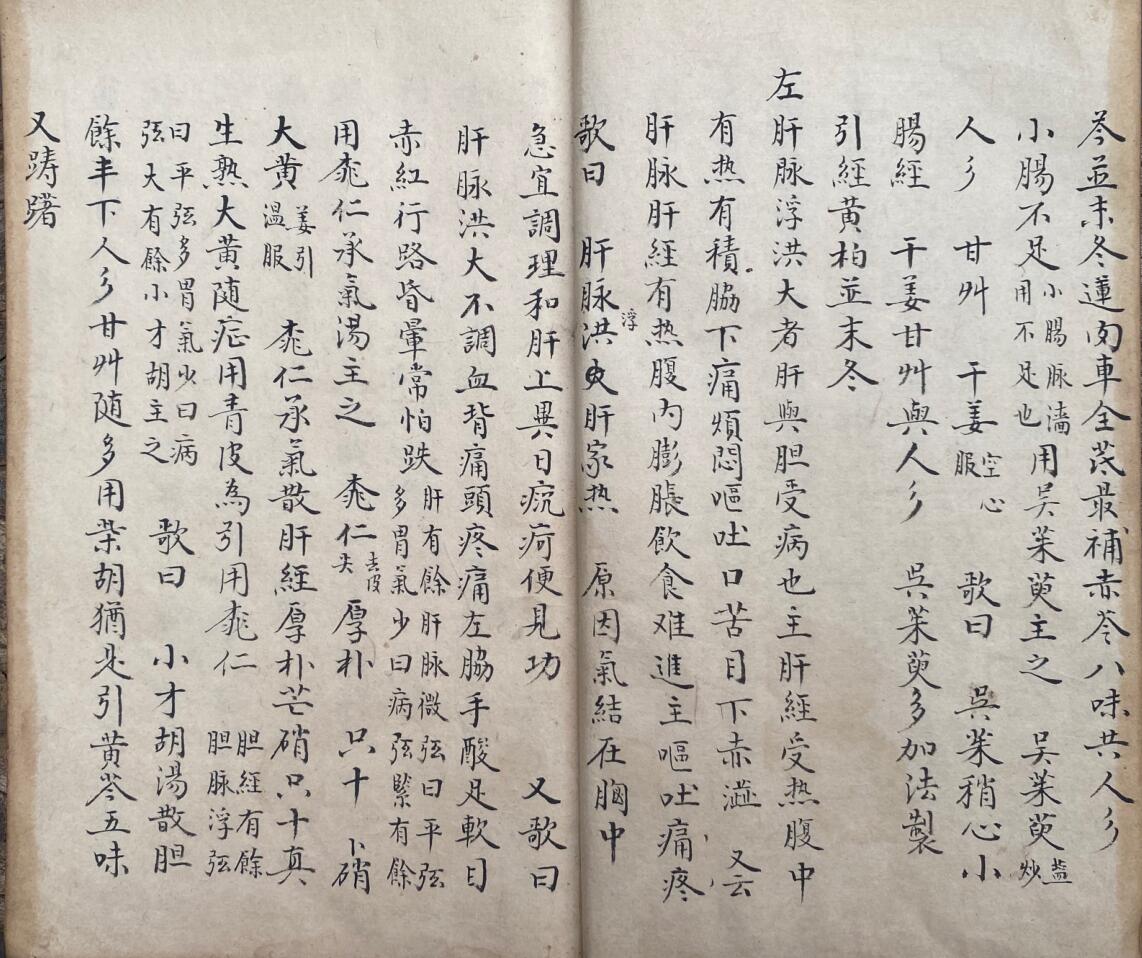 芩並末冬蓮肉車全茋最補赤苓八味共人彡
小腸不足小腸脉濇用不足也用吴茱萸主之 吴茱萸盐炒
人彡 甘艸 干姜空心服 歌曰 吳茱稍心小
腸經 干姜甘艸與人彡 吳茱萸多加法製
引經黄柏並末冬
左肝脉浮洪大者肝與胆受病也主肝經受热腹中
有热有積脇下痛煩悶嘔吐口苦目下赤澁 又云
肝脉肝經有热腹内膨脹飲食难進主嘔吐痛疼
歌曰 肝脉洪浮大肝家热 原因氣結在胸中
急宜調理和肝上異日疣疴便見功 又歌曰
肝脉洪大不調血背痛頭疼痛左脇手酸足軟目
赤紅行路昏暈常怕跌肝有餘肝脉微弦曰平弦多胃氣少曰病弦緊有餘
用桃仁承氣湯主之 桃仁去皮尖 厚朴 只十 卜硝
大黄姜引温服 桃仁承氣散肝經厚朴芒硝只十真
生熟大黄随症用青皮為引用桃仁 胆經有餘胆脉浮弦
曰平弦多胃氣少曰病弦大有餘小才胡主之 歌曰 小才胡湯散胆
餘半下人彡甘艸随多用柴胡猶是引黄芩五味
又踌躇